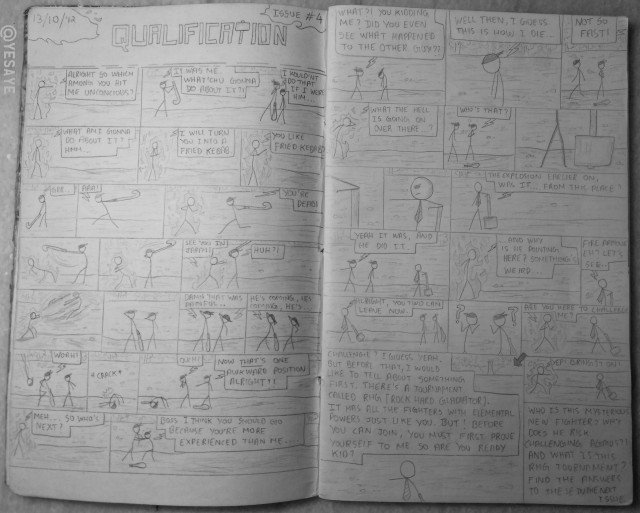 @YESAYE
13/10/12
ISSUE #4
QUALIFICATION
ALRIGHT SO WHICH
AMONG YOU HIT
ME UNCONSCIOUS?
WAS ME.
WHAT'CHU GONNA
DO ABOUT IT?!
I WOULD NOT
DO THAT
IF I WERE
HIM...
WHAT AM I GONNA
DO ABOUT IT?
HMM...
I WILL TURN
YOU INTO A
FRIED KEBAB
YOU LIKE
FRIED KEBAB?
AAA!
YOU'RE
DEAD!
SEE YOU IN
HUH?!
DAMN THAT WAS
HE'S COMING, HE'S
COMING, HE'S
WOAH!
*CRACK*
OUCH!
NOW THAT'S ONE
AWKWARD POSITION
ALRIGHT!!
MEH... SO WHO'S
NEXT?
BOSS I THINK YOU SHOULD GO
BECAUSE YOU'RE MORE
EXPERIENCED THAN ME...
WHAT?! YOU KIDDING
ME? DID YOU EVEN
SEE WHAT HAPPENED
TO THE OTHER GUY??
WELL THEN, I GUESS
THIS IS HOW I DIE...
NOT SO
FAST!
WHAT THE HELL
IS GOING ON
OVER THERE..?
WHO'S THAT?
THE EXPLOSION EARLIER ON,
WAS IT... FROM THIS PLACE?
YEAH IT WAS, AND
HE DID IT.
AND WHY
IS HE POINTING
HERE? SOMETHING'S
WEIRD...
FIRE
EH? LET'S
SEE..
ALRIGHT, YOU TWO CAN
LEAVE NOW.
ARE YOU HERE TO CHALLENGE
ME?
CHALLENGE? I GUESS YEAH.
BUT BEFORE THAT, I WOULD
LIKE TO TELL ABOUT SOMETHING
FIRST. THERE'S A TOURNAMENT
CALLED RHG [ROCK HARD GLADIATOR].
IT HAS ALL THE FIGHTERS WITH ELEMENTAL
POWERS JUST LIKE YOU. BUT! BEFORE
YOU CAN JOIN, YOU MUST FIRST PROVE
YOURSELF TO ME. SO ARE YOU READY
KID?
BRING IT ON!
WHO IS THIS MYSTERIOUS
NEW FIGHTER? WHY
DOES HE RISK
CHALLENGING
AND WHAT IS THIS
RHG TOURNAMENT?
FIND THE ANSWERS
TO THESE IN THE NEXT
ISSUE